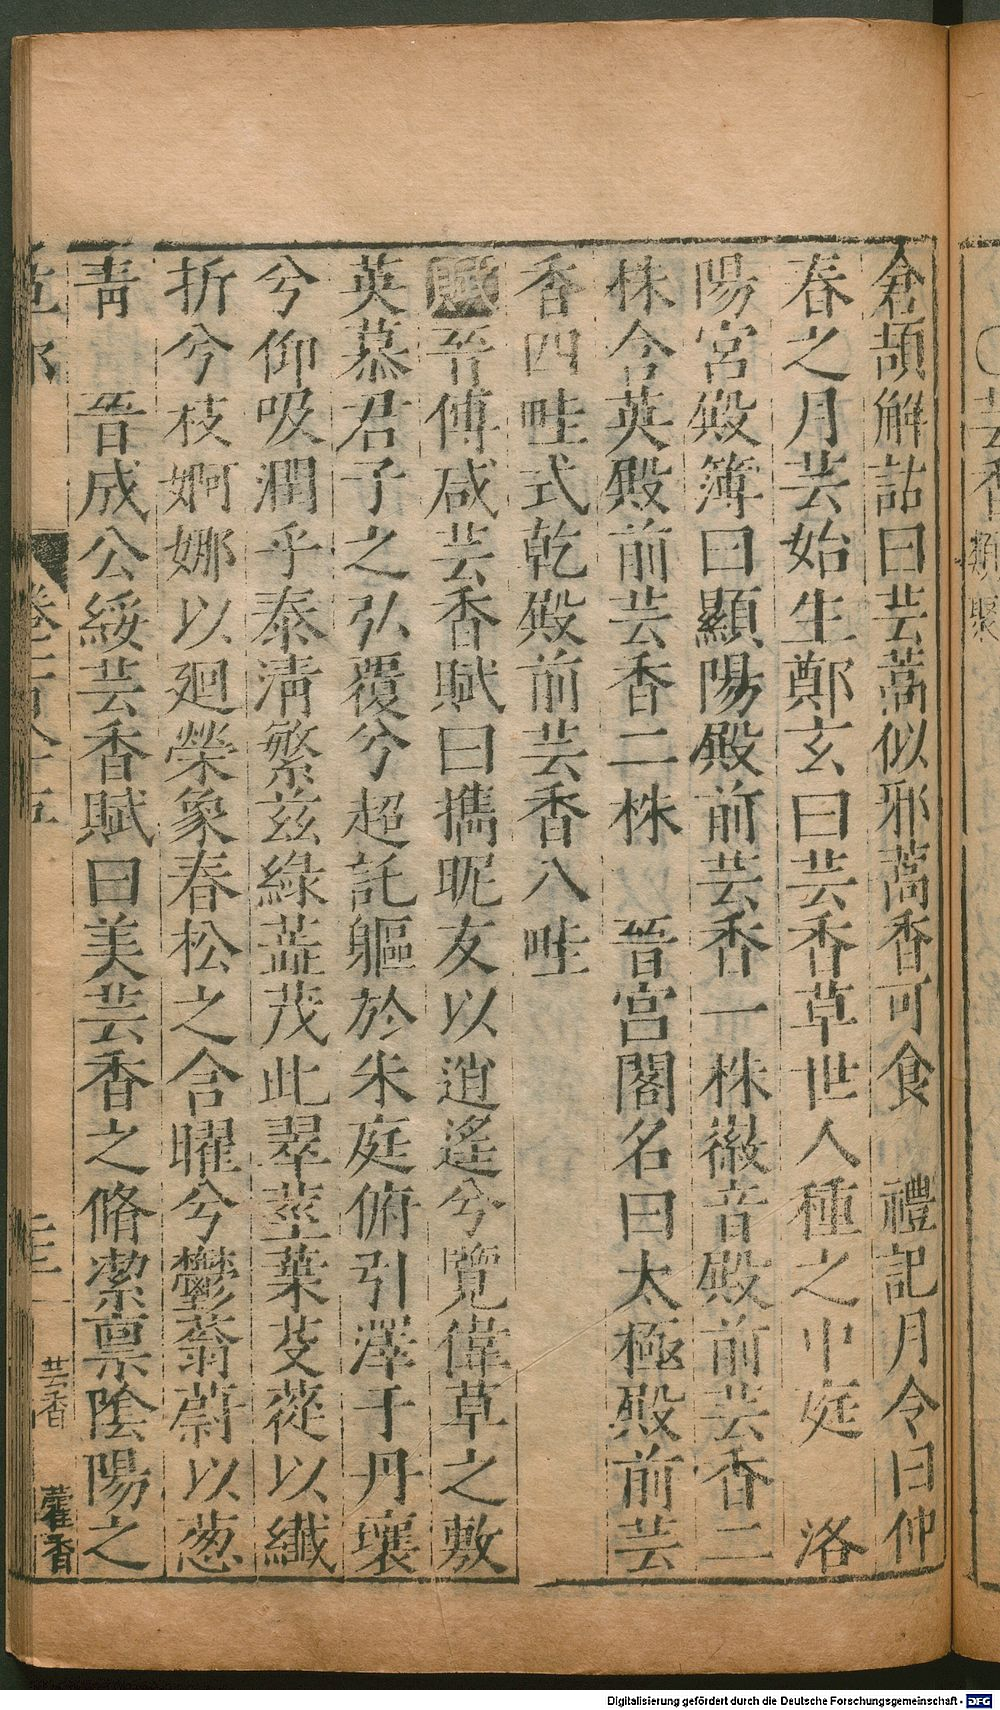 〇芸香類聚
倉頡解詁曰芸蒿似邪蒿香可食　禮記月令曰仲
春之月芸始生鄭玄曰芸香草世人種之中庭　洛
陽宮殿簿曰顯陽殿前芸香一株徽音殿前芸香二
株含英殿前芸香二株　晉宮閣名曰太極殿前芸
香四畦式乾殿前芸香八畦
賦晉傅咸芸香賦曰攜昵友以逍遙兮覽偉草之敷
英慕君子之弘覆兮超託軀於朱庭俯引澤于丹壤
兮仰吸潤乎泰清繁茲綠蕋茂此翠莖葉芟蓰以纖
折兮枝婀娜以廻縈象春松之含曜兮鬱蓊蔚以葱
青　晉成公綏芸香賦曰美芸香之脩潔稟陰陽之
芸香　藿香
Digitalisierung gefördert durch die Deutsche Forschungsgemeinschaft - DFG